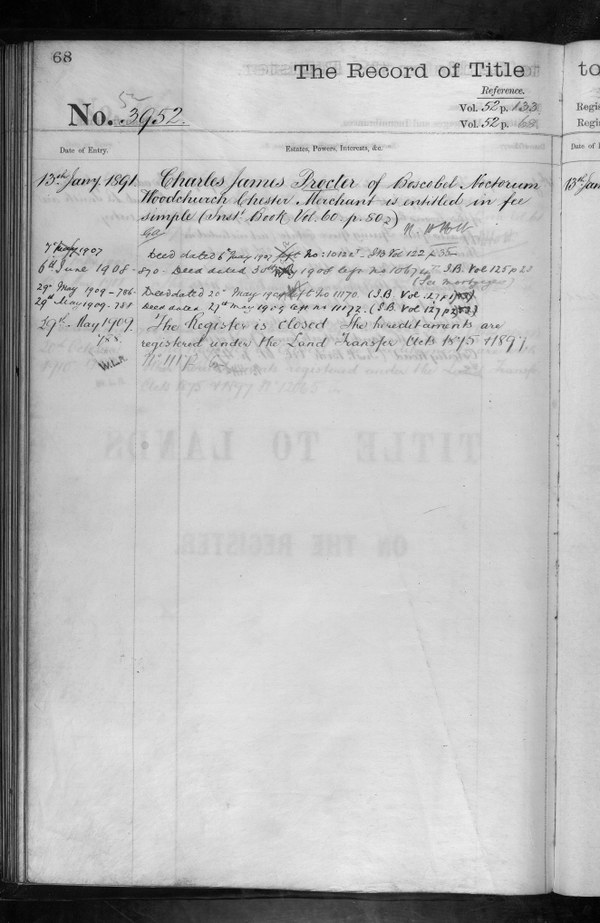 68
The Record of Title
Reference.
No. 3952.
Vol. 52 p. 133
Vol. 52 p. 68
Date of Entry.
Estates, Powers, Interests, &c.
13th Jany. 1891. Charles James Procter of Boscobel Noctorum
Woodchurch Chester Merchant is entitled in fee
simple (Inst. Book Vol. 60. p. 502)
1907 Deed dated 6th May 1907 No: S.B. Vol 122 p 35
6th June 1908 - 870 - Deed dated 1908 S.B. Vol 125 p 23
(for mortgagee)
29th May 1909 - 786 - Deed dated 20th May No 11170. (S.B. Vol 127 p
29th May 1909 - 787 Deed dated 27th May 1909 no 11172. (S.B. Vol 127 p
29th May 1909. The Register is closed The hereditaments are
788. registered under the Land Transfer Acts 1875 & 1897
TITLE TO LANDS
ON THE REGISTER.
to
Regi
Regi
Date of E
13th Jan